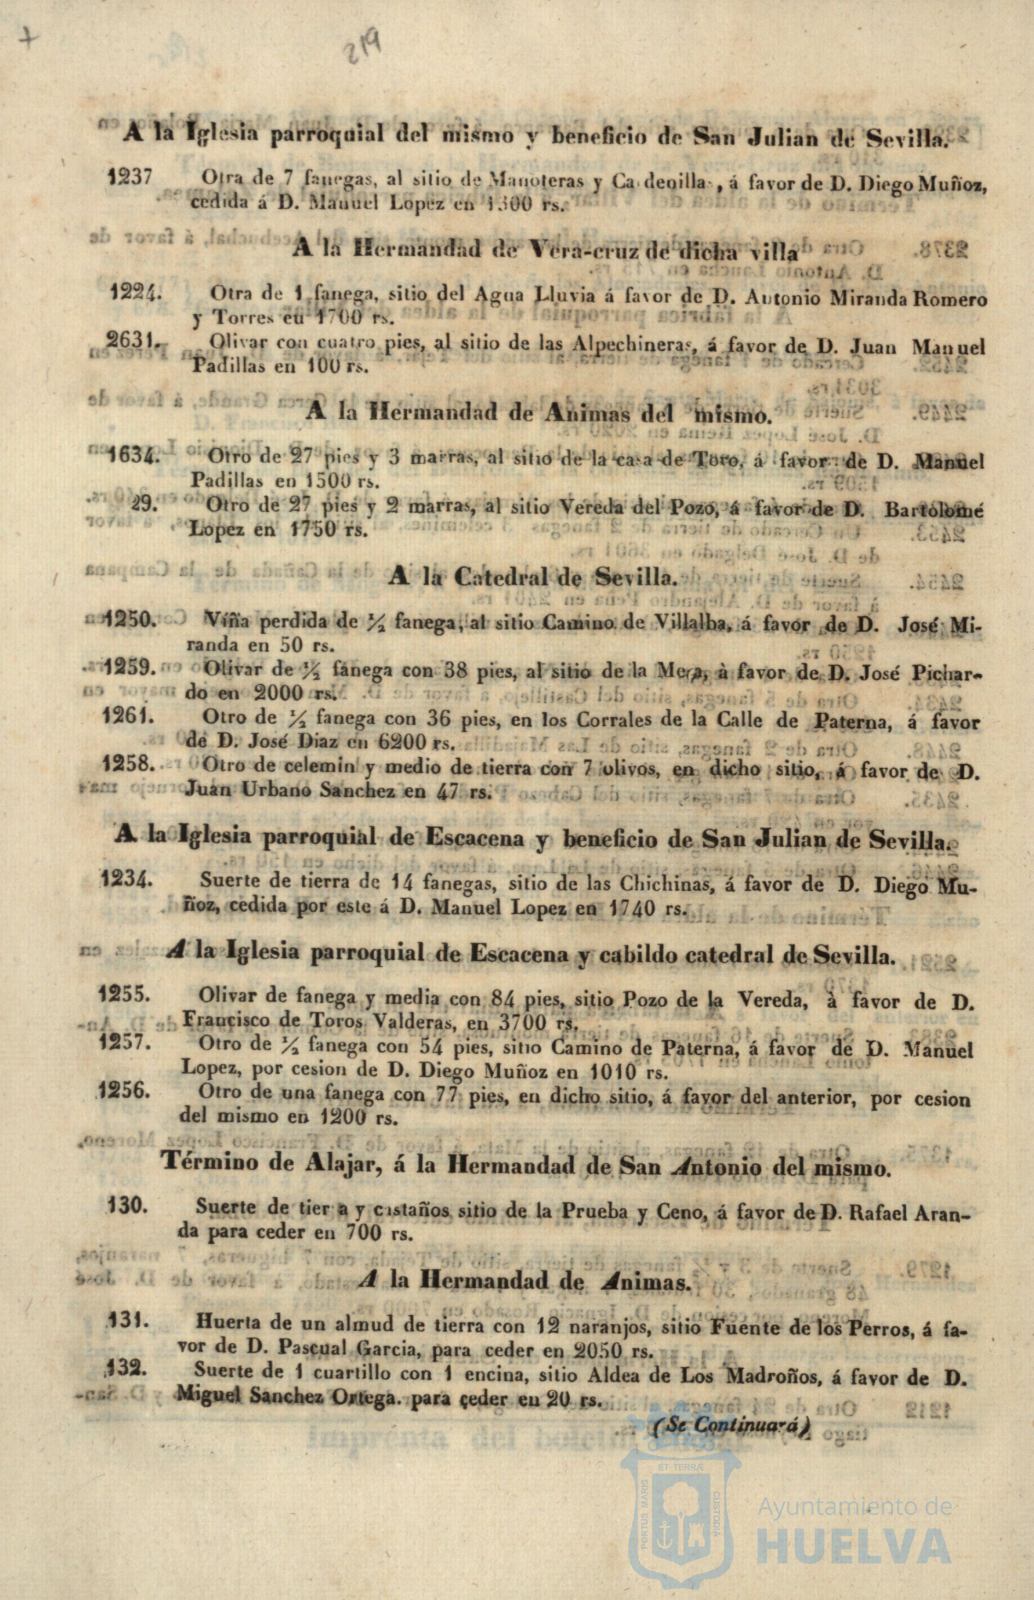 219
A la Iglesia parroquial del mismo y beneficio de San Julian de Sevilla.
1237 Otra de 7 fanegas, al sitio de Manoteras y Ca denilla , á favor de D. Diego Muñoz,
cedida á D. Manuel Lopez en 1300 rs.
A la Hermandad de Vera-cruz de dicha villa
1224. Otra de 1 fanega, sitio del Agua Lluvia á favor de D. Antonio Miranda Romero
y Torres en 1700 rs.
2631. Olivar con cuatro pies, al sitio de las Alpechineras, á favor de D. Juan Manuel
Padillas en 100 rs.
A la Hermandad de Animas del mismo.
1634. Otro de 27 pies y 3 marras, al sitio de la casa de Toro, á favor de D. Manuel
Padillas en 1500 rs.
29. Otro de 27 pies y 2 marras, al sitio Vereda del Pozo, á favor de D. Bartolomé
Lopez en 1750 rs.
A la Catedral de Sevilla.
1250. Viña perdida de ½ fanega, al sitio Camino de Villalba, á favor de D. José Mi-
randa en 50 rs.
1259. Olivar de ½ fanega con 38 pies, al sitio de la Mesa, à favor de D. José Pichar-
do en 2000 rs.
1261. Otro de ½ fanega con 36 pies, en los Corrales de la Calle de Paterna, á favor
de D. José Diaz en 6200 rs.
1258. Otro de celemin y medio de tierra con 7 olivos, en dicho sitio, á favor de D.
Juan Urbano Sanchez en 47 rs.
A la Iglesia parroquial de Escacena y beneficio de San Julian de Sevilla.
1234. Suerte de tierra de 14 fanegas, sitio de las Chichinas, á favor de D. Diego Mu-
ñoz, cedida por este á D. Manuel Lopez en 1740 rs.
A la Iglesia parroquial de Escacena y cabildo catedral de Sevilla.
1255. Olivar de fanega y media con 84 pies, sitio Pozo de la Vereda, à favor de D.
Francisco de Toros Valderas, en 3700 rs.
1257. Otro de ½ fanega con 54 pies, sitio Camino de Paterna, á favor de D. Manuel
Lopez, por cesion de D. Diego Muñoz en 1010 rs.
1256. Otro de una fanega con 77 pies, en dicho sitio, á favor del anterior, por cesion
del mismo en 1200 rs.
Término de Alajar, á la Hermandad de San Antonio del mismo.
130. Suerte de tier a y cistaños sitio de la Prueba y Ceno, á favor de D. Rafael Aran-
da para ceder en 700 rs.
A la Hermandad de Animas.
131. Huerta de un almud de tierra con 12 naranjos, sitio Fuente de los Perros, á fa-
vor de D. Pascual Garcia, para ceder en 2050 rs.
132. Suerte de 1 cuartillo con 1 encina, sitio Aldea de Los Madroños, á favor de D.
Miguel Sanchez Ortega. para ceder en 20 rs.
(Se Continuará)
PORTUS MARIS ET TERRÆ CUSTODIA
Ayuntamiento de
HUELVA